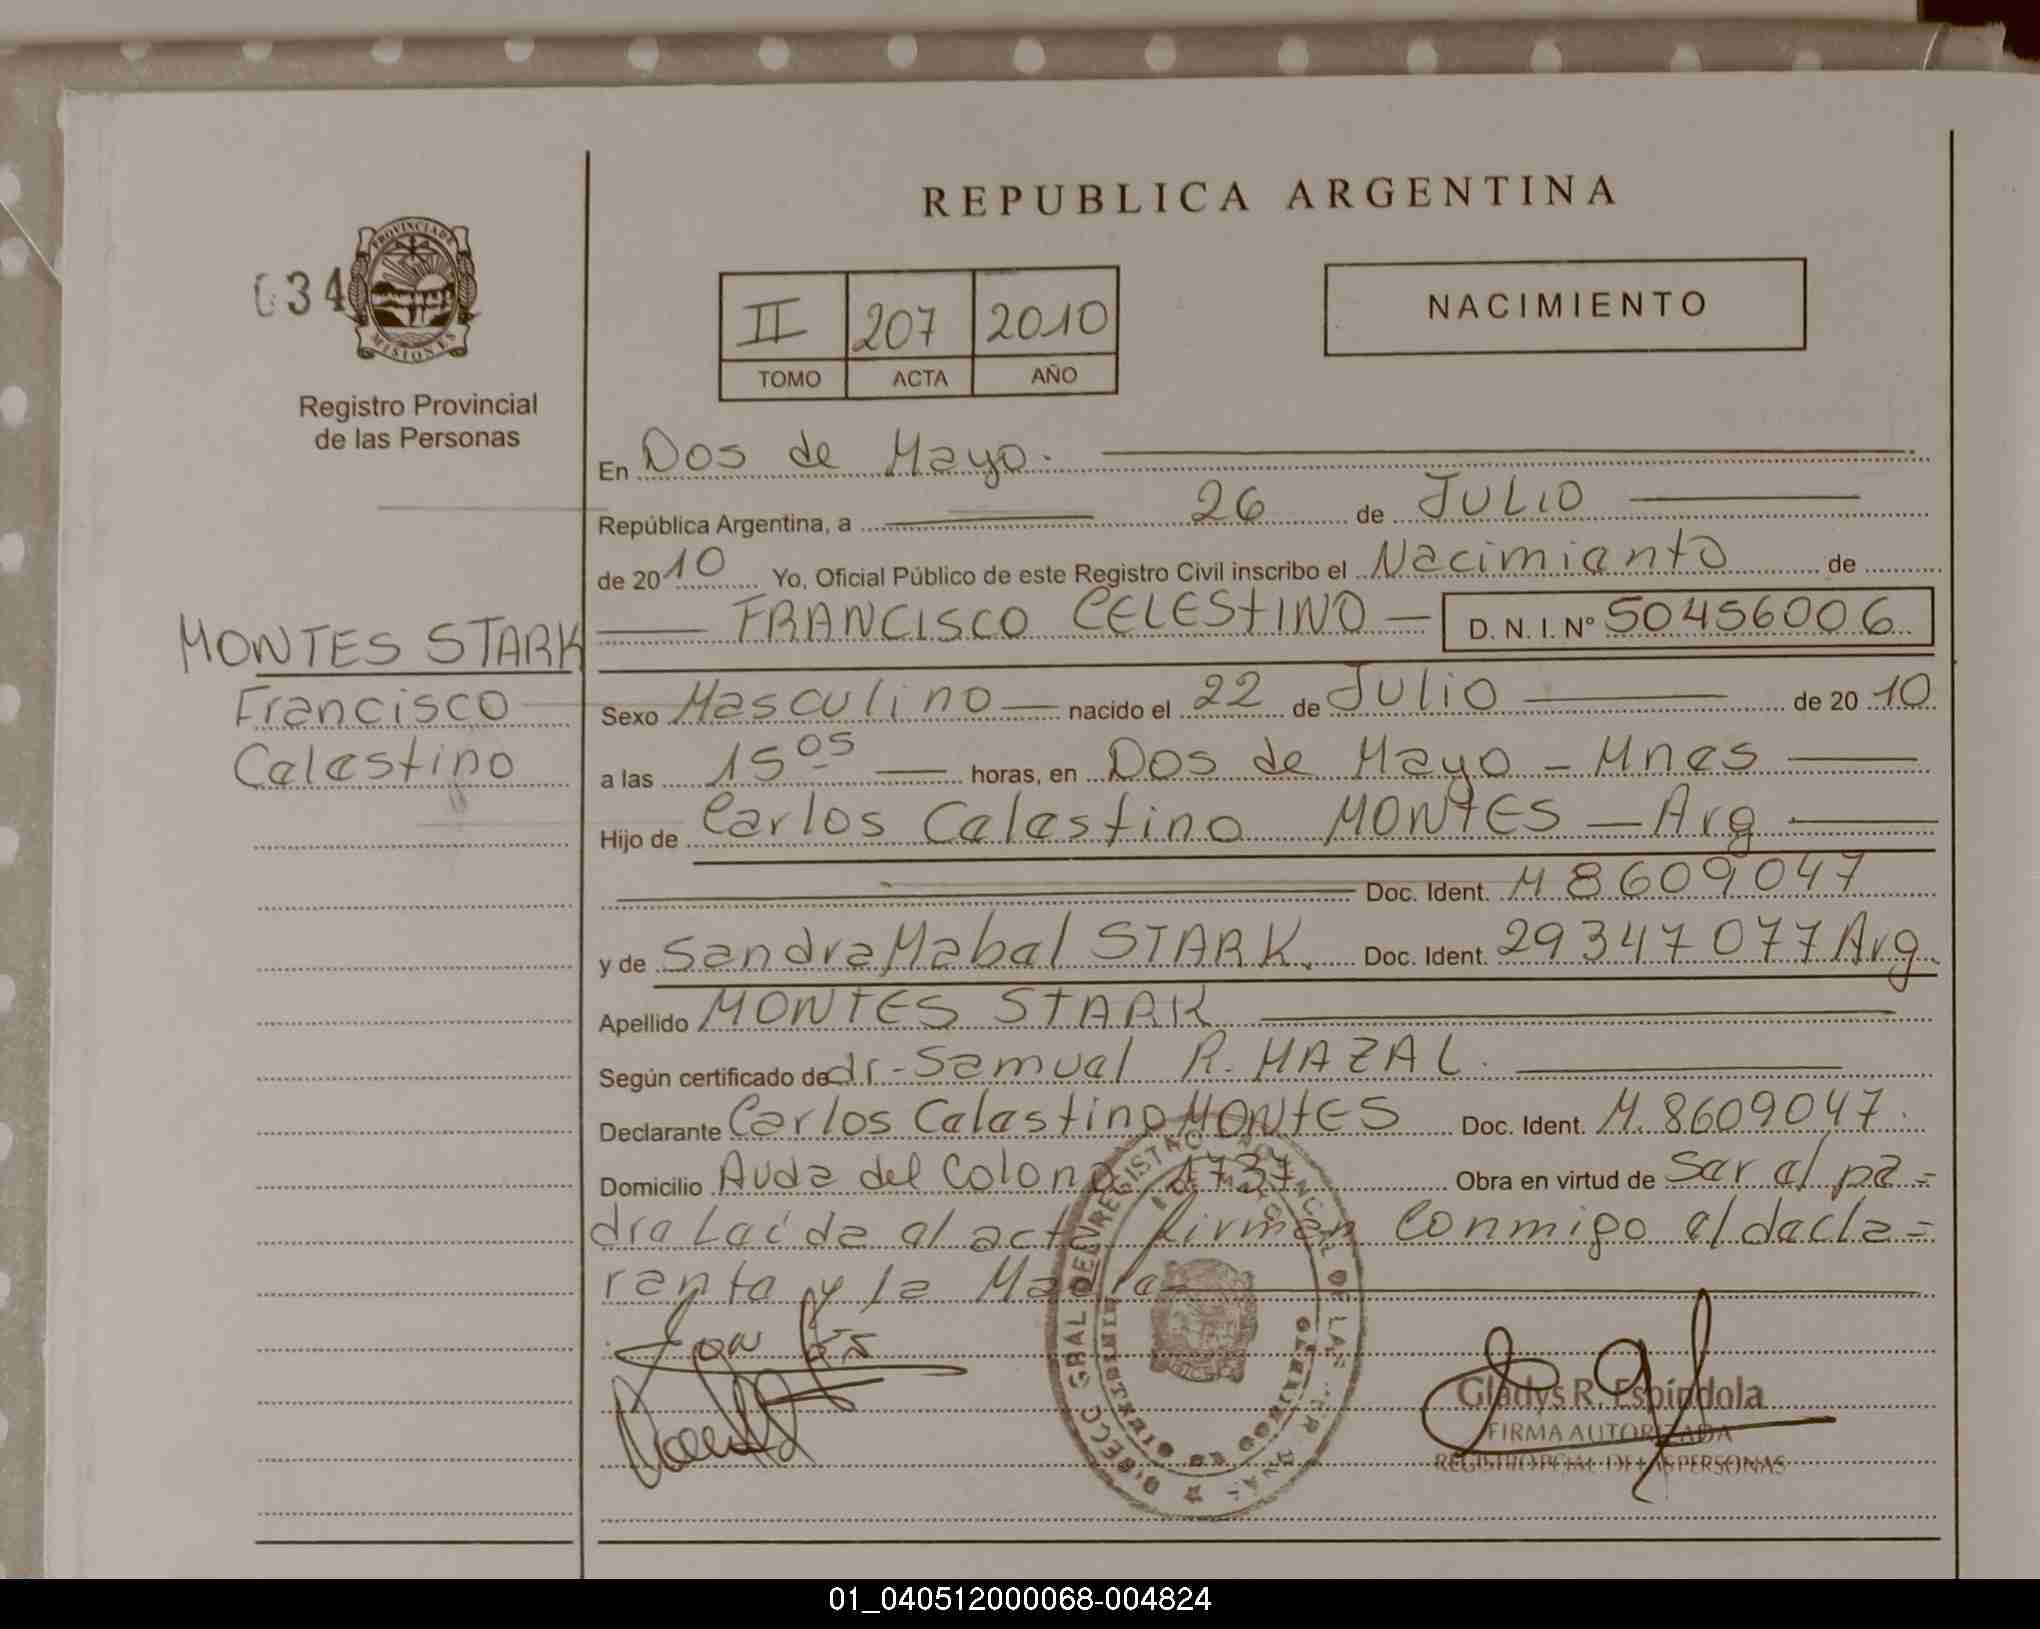 REPUBLICA ARGENTINA
PROVINCIA DE
MISIONES
034
Registro Provincial
de las Personas
II 207 2010
TOMO ACTA AÑO
NACIMIENTO
En Dos de Mayo.
República Argentina, a 26 de JULIO
de 2010 Yo, Oficial Público de este Registro Civil inscribo el Nacimianto de
MONTES STARK
Francisco
Celestino
FRANCISCO CELEStINO D. N. I. Nº 50456006
Sexo Masculino nacido el 22 de JULIO de 2010
a las 15 05 horas, en Dos de Mayo - Mnes
Hijo de Carlos Celestino MONtES - Arg
Doc. Ident. M 8609047
y de Sandra Mabel STARK. Doc. Ident. 29347077 Arg.
Apellido MONtES StARK
Según certificado de dr. Samuel R. MAZAL.
Declarante Carlos Celestino MONtES Doc. Ident. M. 8609047.
Domicilio Avda del Colono 1737 Obra en virtud de Ser el pa=
dre Leída el acta firman Conmigo el decla=
rante y la Madre
Gladys R. Espíndola
FIRMA AUTORIZADA
REGISTRO PCIAL. DE LAS PERSONAS
01_040512000068-004824